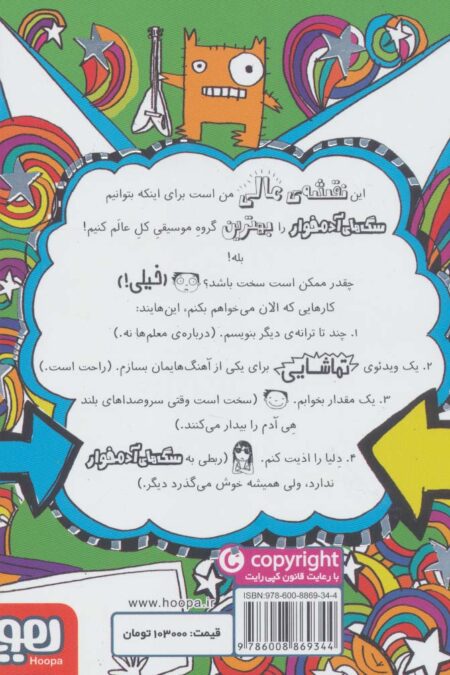 این نقشه‌ی عالی من است برای اینکه بتوانیم
سگ‌های آدمخوار را بهترین گروه موسیقیِ کلِ عالَم کنیم!
بله!
چقدر ممکن است سخت باشد؟ (خیلی!)
کارهایی که الان می‌خواهم بکنم، این‌هایند:
۱. چند تا ترانه‌ی دیگر بنویسم. (درباره‌ی معلم‌ها نه.)
۲. یک ویدئوی تماشایی برای یکی از آهنگ‌هایمان بسازم. (راحت است.)
۳. یک مقدار بخوابم. (سخت است وقتی سروصداهای بلند
هی آدم را بیدار می‌کنند.)
۴. دِلیا را اذیت کنم. (ربطی به سگ‌های آدمخوار
ندارد، ولی همیشه خوش می‌گذرد دیگر.)
copyright
با رعایت قانون کپی‌رایت
www.hoopa.ir
قیمت: ۱۰۳۰۰۰ تومان
ISBN:978-600-8869-34-4
9786008869344
هوپا
Hoopa